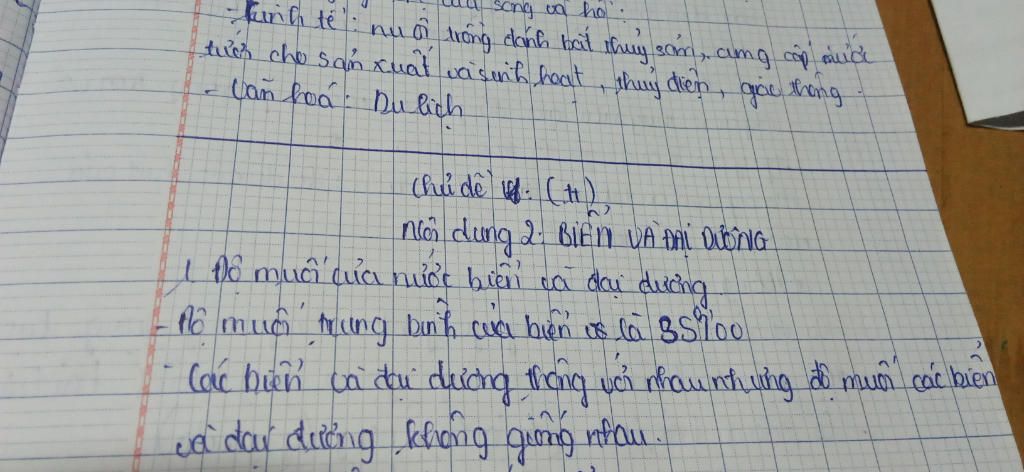 của sông và hồ:
- Kinh tế: nuôi trồng đánh bắt thuỷ sản, cung cấp nước
tưới cho sản xuất và sinh hoạt, thuỷ điện, giao thông.
- Văn hoá: Du lịch
Chủ đề (tt)
Nội dung 2: BIỂN VÀ ĐẠI DƯƠNG
1. Độ muối của nước biển và đại dương
- Độ muối trung bình của biển là 35%00
- Các biển và đại dương thông với nhau nhưng độ muối các biển
và đại dương không giống nhau.